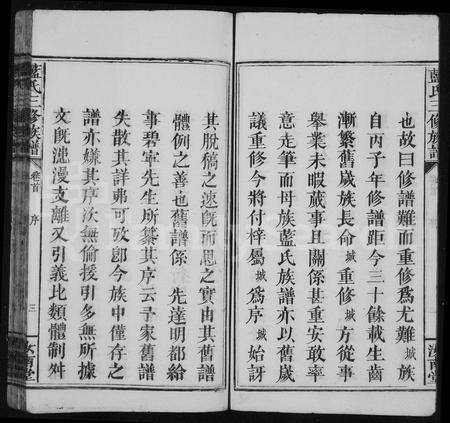 藍氏三修族譜
也故曰修譜難而重修爲尤難 城 族
自丙子年修譜距今三十餘載生齒
漸繁舊歲族長命 城 重修 城 方從事
舉業未暇蕆事且關係甚重安敢率
意走筆而母族藍氏族譜亦以舊歲
議重修今將付梓屬 城 爲序 城 始訝
其脫稿之速旣而思之實由其舊譜
體例之善也舊譜係 先達明都給
事碧寧先生所纂其序云予家舊譜
失散其詳弗可攷卽今族中僅存之
譜亦嫌其序次無倫援引多無所據
文旣漶漫支離又引義比類體制舛
藍氏三修族譜
卷首
序
三
汝南堂